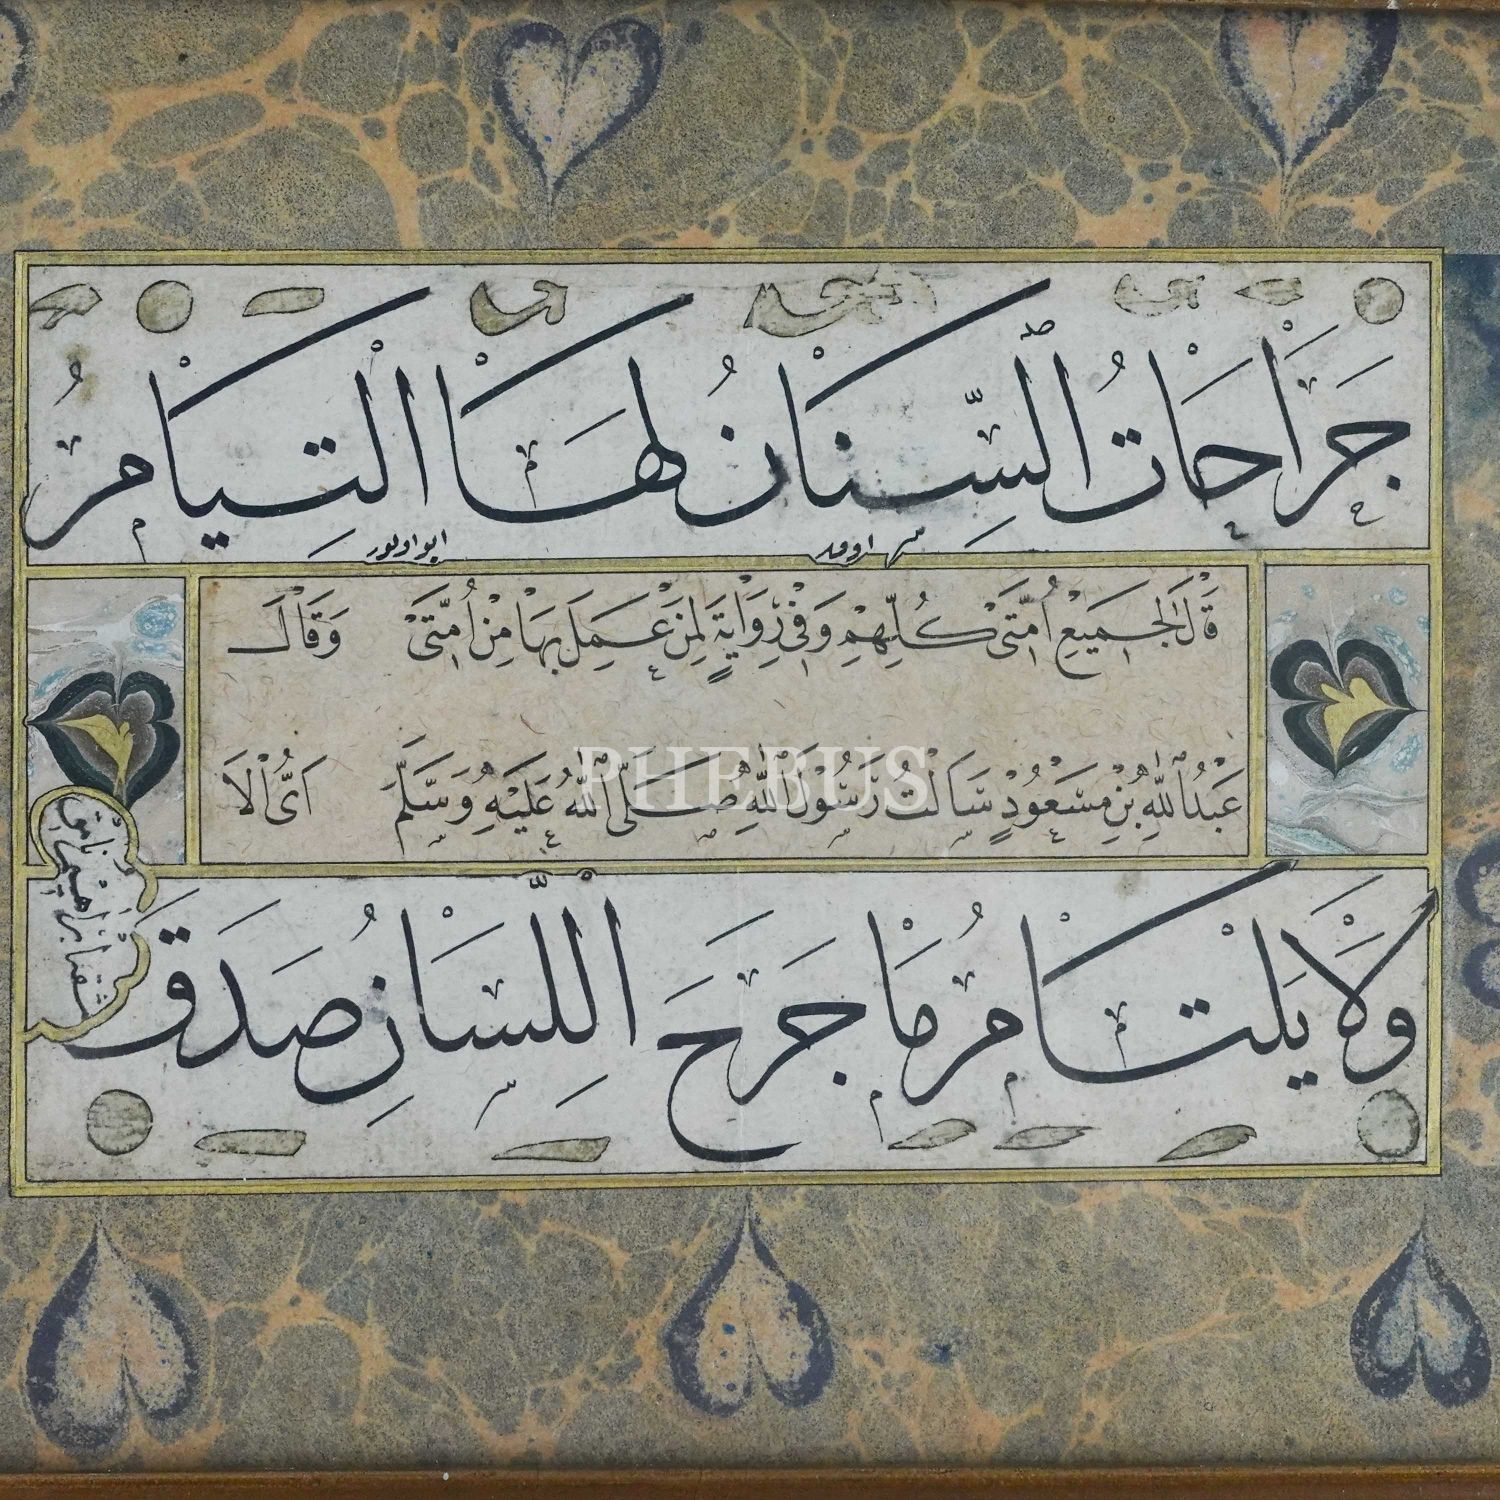 جَرَاحَاتُ ٱلسِّنَانِ لَهَا ٱلْتِيَامُ
قَالَ لِجَمِيعِ اُمَّتِى كُلِّهِمْ وَفِى رِوَايَةٍ لِمَنْ عَمِلَ بِهَا مِنْ اُمَّتِى وَقَالَ
عَبْدُ ٱللّٰهِ بْنُ مَسْعُودٍ سَاَلْتُ رَسُولَ ٱللّٰهِ صَلَّى ٱللّٰهُ عَلَيْهِ وَسَلَّمَ اَىُّ الْاَ
وَلَا يَلْتَامُ مَا جَرَحَ اللِّسَانُ صَدَقَ
PHEBUS